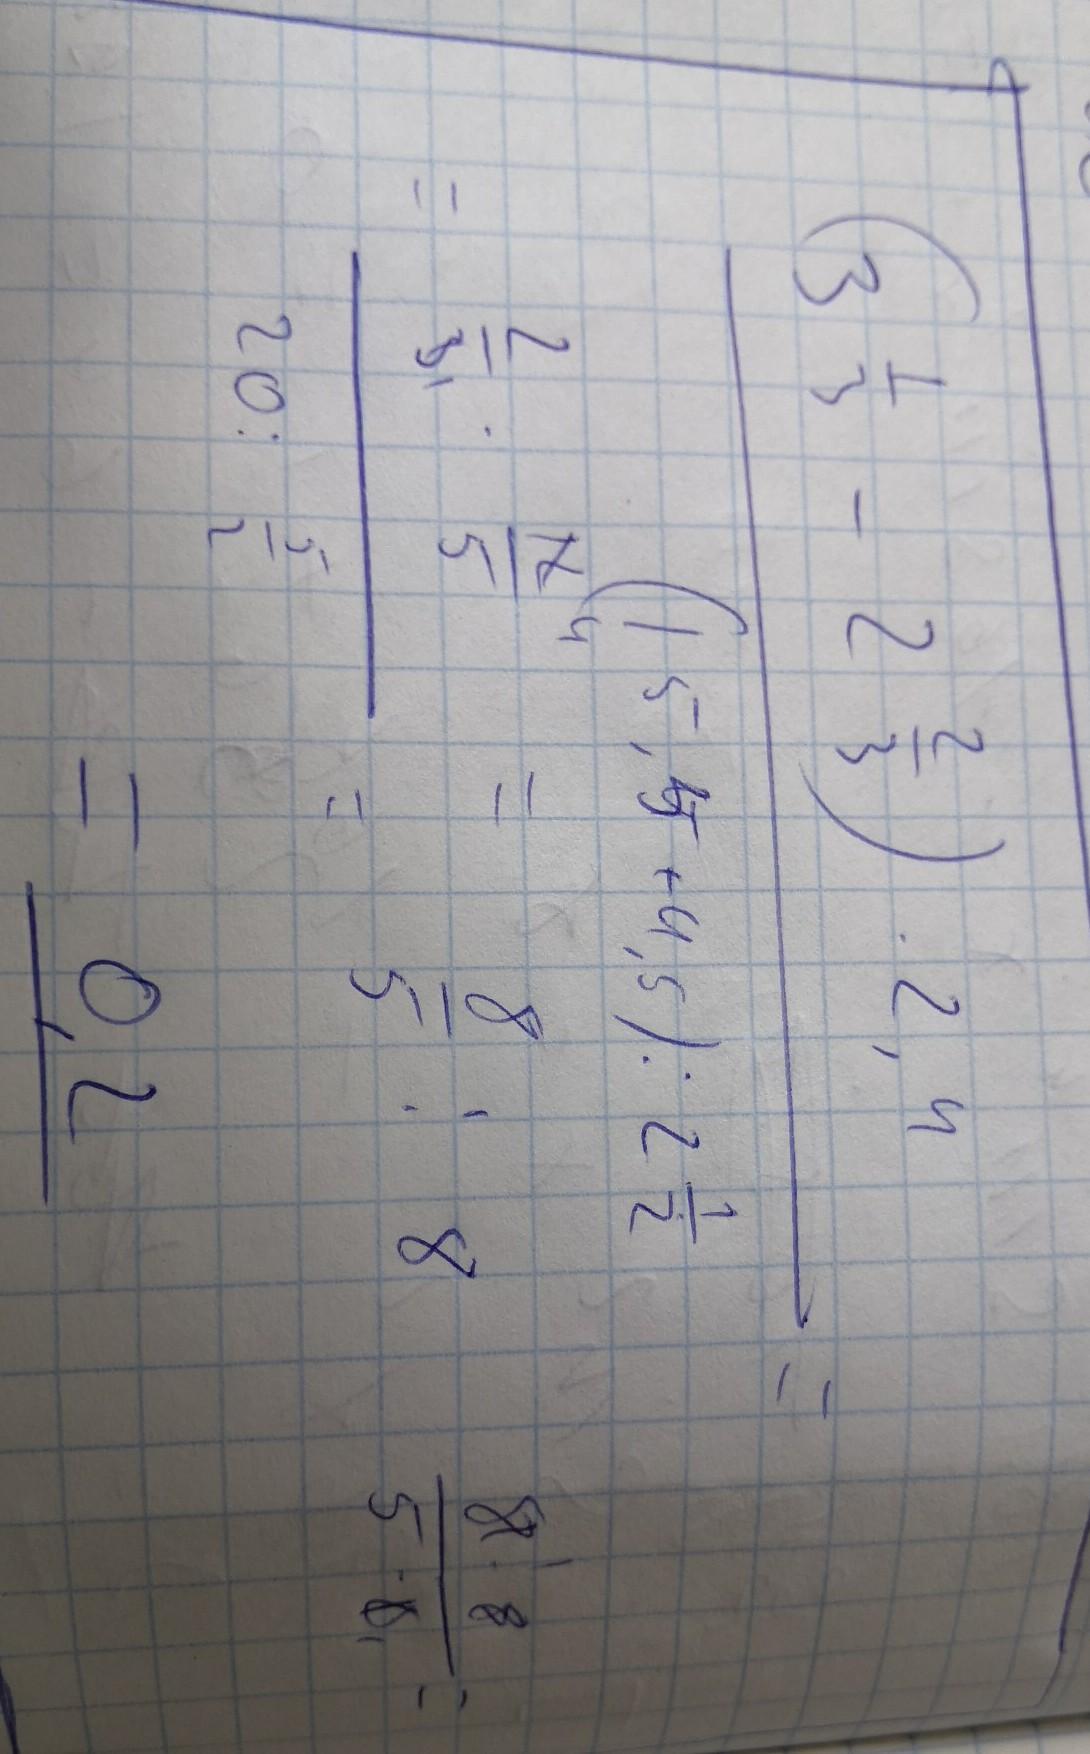 (3 1/3 - 2 2/3) · 2,4
(15,5 + 4,5) : 2 1/2 =
= 2/3 · 12/5 4
20 : 5/2
= 8/5 : 8
=
8 · 8
5 · 8 =
= 0,2